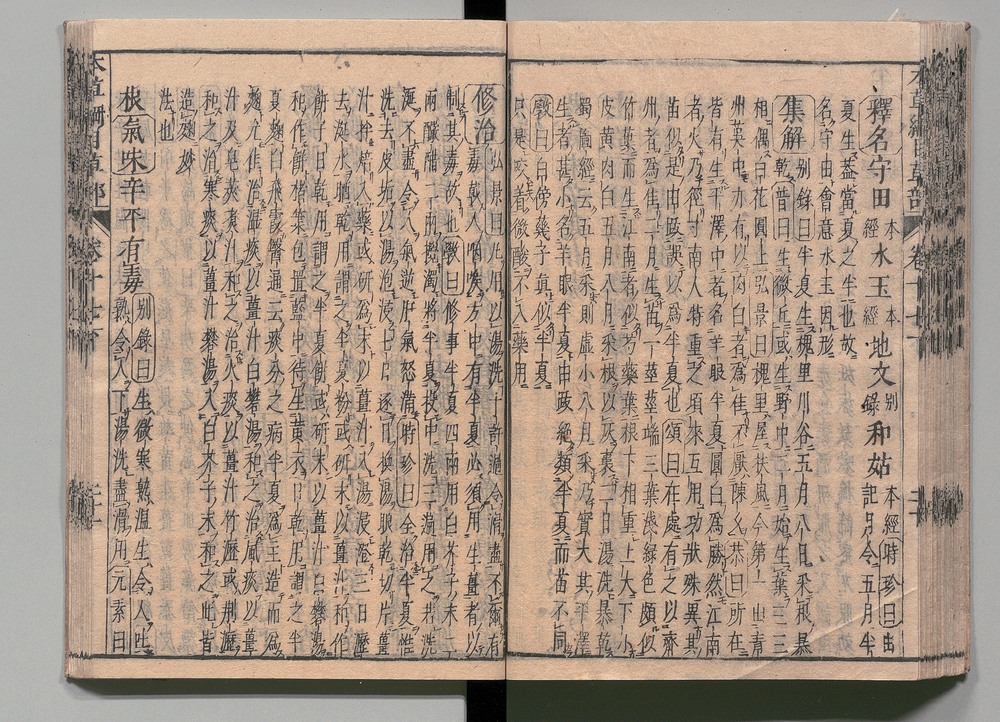 釋名守田本經水玉本經地文別錄和姑本經時珍曰
記月令五月半
夏生蓋當夏之半也故
名守田會意水玉因形
集解別錄曰半夏生槐里川谷五月八月采根暴
乾普曰生微丘或生野中二月始生葉三三
相偶白花圓上弘景曰槐里屬扶風今第一出青
州吳中亦有以肉白者為佳不厭陳久恭曰所在
皆有生平澤中者名羊眼半夏圓白為勝然江南
者大乃徑寸南人特重之頃來互用功狀殊異其
苗似是由跋誤以為半夏也頌曰在處有之以齊
州者為佳二月生苗一莖莖端三葉淺綠色頗似
竹葉而生江南者似芍藥葉根下相重上大下小
皮黃肉白五月八月采根以灰裹二日湯洗暴乾
蜀圖經云五月采則虛小八月采乃實大其平澤
生者甚小名羊眼半夏由跋絕類半夏而苗不同
斅曰白傍子真似半夏
只是咬着微酸不入藥用
本草綱目草部 卷十七下
修治弘景曰凡用以湯洗十許過令滑盡不爾有
毒戟人咽喉方中有半夏必須用生薑者以
制其毒故也斅曰修事半夏四兩用白芥子末二
兩釅醋二兩攪濁將半夏投中洗三遍用之若洗
涎不盡令人氣逆肝氣怒滿時珍曰今治半夏惟
洗去皮垢以湯泡浸七日逐日換湯晾乾切片薑
汁拌焙入藥或研為末以薑汁入湯浸澄三日瀝
去涎水晒乾用謂之半夏粉或研末以薑汁和作
餅子日乾用謂之半夏餅或研末以薑汁白礬湯
和作餅楮葉包置籃中待生黃衣日乾用謂之半
夏麴也白飛霞醫通云痰分之病半夏為主造而為
麴尤佳治濕痰以薑汁白礬湯和之治風痰以薑
汁及皂莢煮汁和之治火痰以薑汁竹瀝或荊瀝
和之治寒痰以薑汁礬湯入白芥子末和之此皆
造麴妙
法也
根氣味辛平有毒別錄曰生微寒熟溫生令人吐
熟令人下湯洗盡滑用元素曰
本草綱目草部 卷十七下